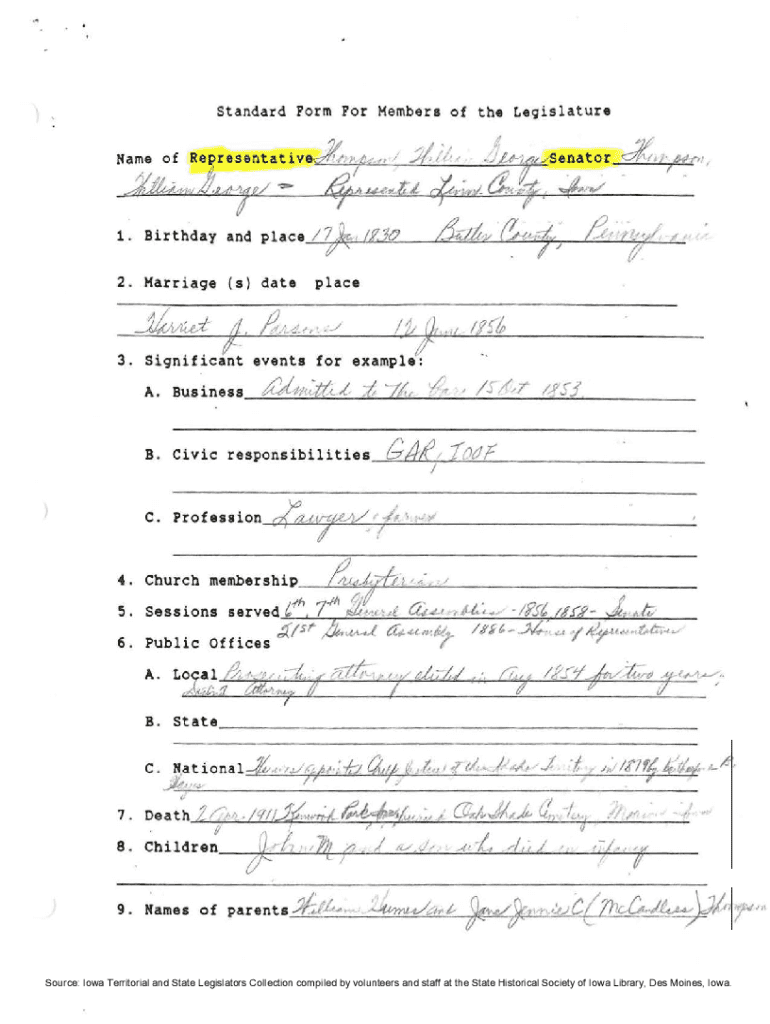 Standard Form For Members of the Legislature
Name of Representative Thompson, William George Senator Thompson,
William George = Represented Linn County, Iowa
1. Birthday and place 17 Jan 1830 Butler County, Pennsylvania
2. Marriage (s) date place
Harriet J. Parsons 12 June 1856
3. Significant events for example:
A. Business Admitted to the Bar 15 Oct 1853
B. Civic responsibilities GAR, IOOF
C. Profession Lawyer, farmer
4. Church membership Presbyterian
5. Sessions served 6th, 7th General Assemblies - 1856, 1858 - Senate
21st General Assembly 1886 - House of Representatives
6. Public Offices
A. Local Prosecuting attorney elected in Aug 1854 for two years;
District Attorney
B. State
C. National He was appointed Chief Justice of the Idaho Territory in 1879 by Rutherford B.
Hayes
7. Death 2 Apr. 1911 Kenwood Park, Iowa, buried Oak Shade Cemetery, Marion, Iowa
8. Children John M and a son who died in infancy
9. Names of parents William Humes and Jane Jennie C (McCandless) Thompson
Source: Iowa Territorial and State Legislators Collection compiled by volunteers and staff at the State Historical Society of Iowa Library, Des Moines, Iowa.